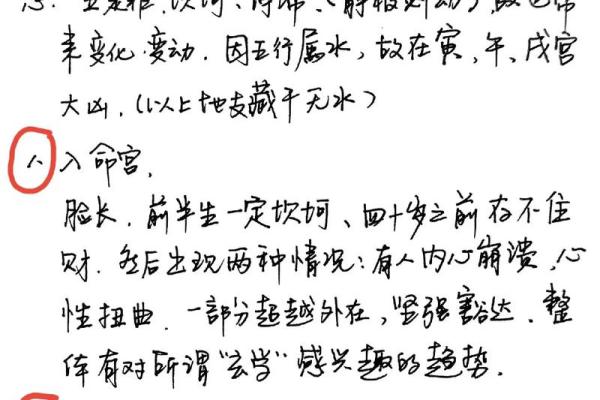 来变化、变动。因五行属水，故在寅、午、戌宫
大凶。（以上地支藏干无水）
入命宫、
脸长。前半生一定坎坷、四十岁之前存不住
财。然后出现两种情况：有人内心崩溃，心
性扭曲。一部分超越外在，坚强豁达。整
体有对所谓“玄学”感兴趣的趋势。